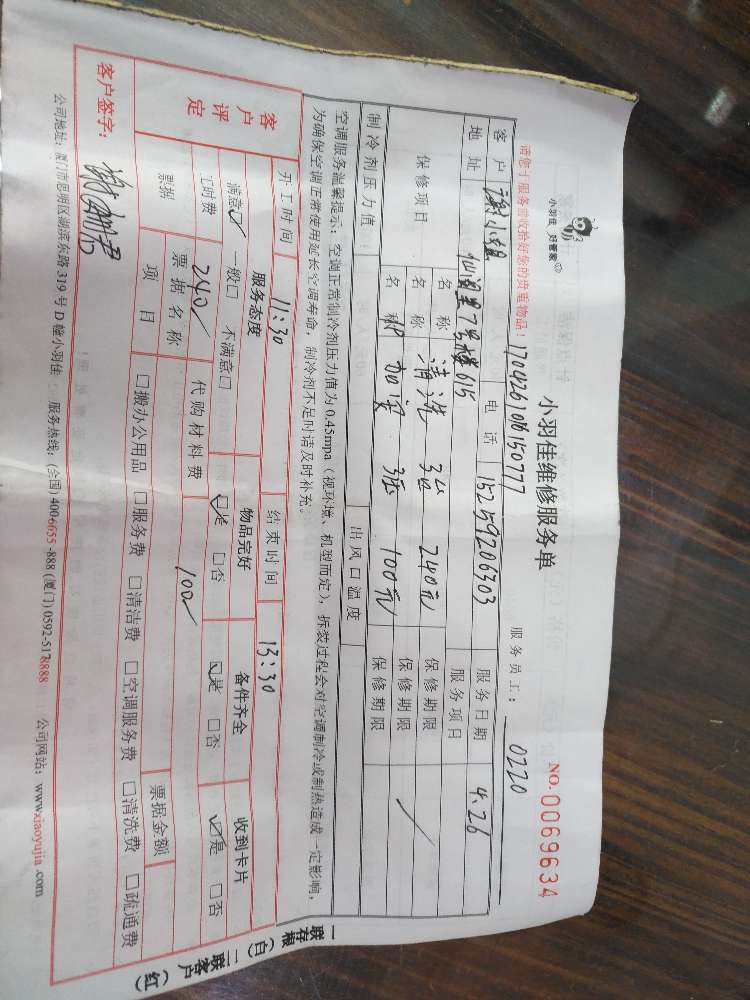 小羽佳 好管家
小羽佳维修服务单
NO.0069634
请您于服务前收拾好您的贵重物品!
服务员工: 0220
客户 谢小姐 电话 15259206303 服务日期 4.26
地址 仙阁里7号楼615 服务项目
保修项目 名称 清洗 3台 240元 保修期限
名称 加安 3组 100元 保修期限
名称 保修期限
制冷剂压力值 出风口温度
空调服务温馨提示:空调正常制冷剂压力值为0.45mpa(视环境、机型而定),拆装过程会对空调制冷或制热造成一定影响,
为确保空调正常使用延长空调寿命,制冷剂不足时请及时补充。
开工时间 11:30 结束时间 13:30
客户评定
服务态度 物品完好 备件齐全 收到卡片
满意☑ 一般□ 不满意□ ☑是 □否 ☑是 □否 ☑是 □否
工时费 240 代购材料费 100
票据 票据名称 票据金额
项目 □搬办公用品 □服务费 □清洁费 □空调服务费 □清洗费 □疏通费
客户签字:
公司地址:厦门市思明区湖滨东路319号D幢小羽佳 服务热线:(全国)4006655-888(厦门)0592-5178888 公司网站:www.xiaoyujia.com
一联存根(白) 二联客户(红)